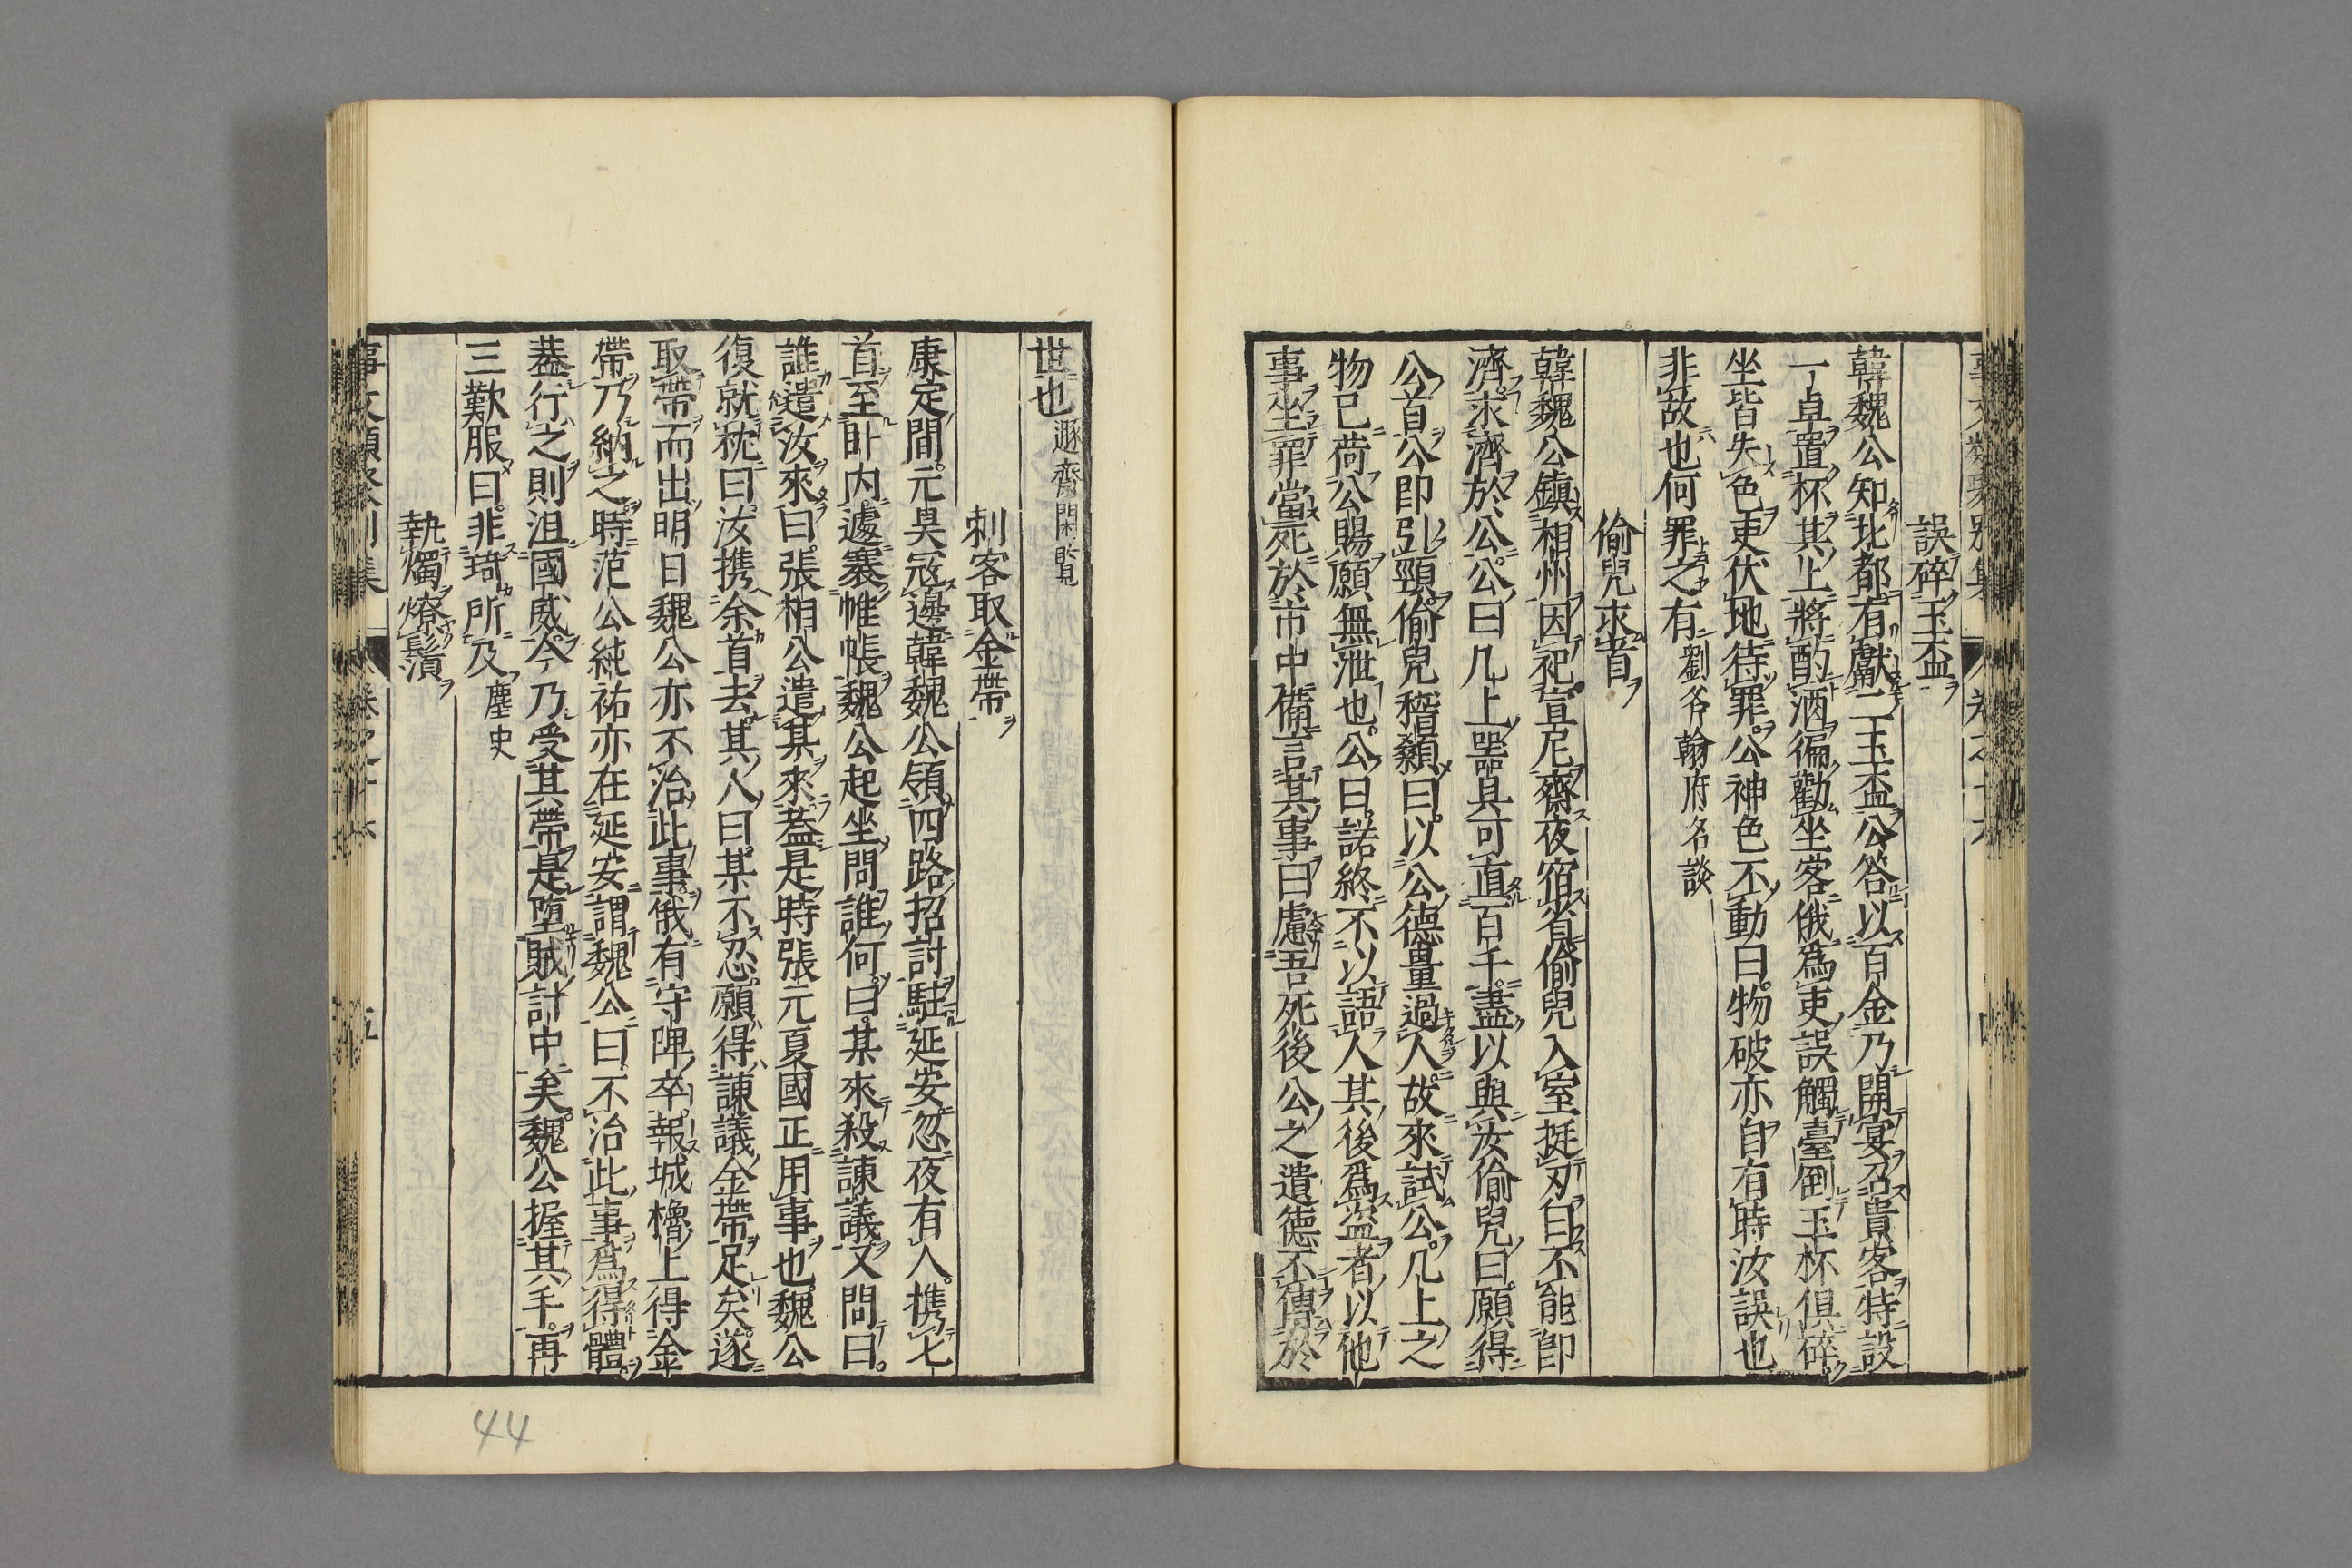 誤碎玉盃
韓魏公知北都有獻二玉盃公答以百金乃開宴召貴客特設
一卓置杯其上將酌酒徧勸坐客俄爲吏誤觸臺倒玉杯俱碎
坐皆失色吏伏地待罪公神色不動曰物破亦自有時汝誤也
非故也何罪之有劉斧翰府名談
偷兒求首
韓魏公鎮相州因祀宣尼齋夜宿省偷兒入室挺刃曰不能自
濟求濟於公公曰几上噐具可直百千盡以與汝偷兒曰願得
公首公即引頸偷兒稽顙曰以公德量過人故來試公几上之
物已荷公賜願無泄也公曰諾終不以語人其後爲盗者以他
事坐罪當死於市中備言其事曰慮吾死後公之遺德不傳於
世也遯齋閑覧
刺客取金帶
康定間元昊冦邊韓魏公領四路招討駐延安忽夜有人携匕
首至卧内遽褰帷帳魏公起坐問誰何曰某來殺諫議又問曰
誰遣汝來曰張相公遣某來葢是時張元夏國正用事也魏公
復就枕曰汝携余首去其人曰某不忍願得諫議金帶足矣遂
取帶而出明日魏公亦不治此事俄有守陴卒報城櫓上得金
帶乃納之時范公純祐亦在延安謂魏公曰不治此事爲得體
葢行之則沮國威今乃受其帶是堕賊計中矣魏公握其手再
三歎服曰非琦所及麈史
執燭燎鬚
事文類聚別集 卷之十六 五
44